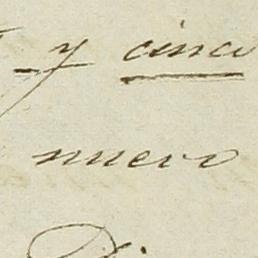 y cinco
nuevo